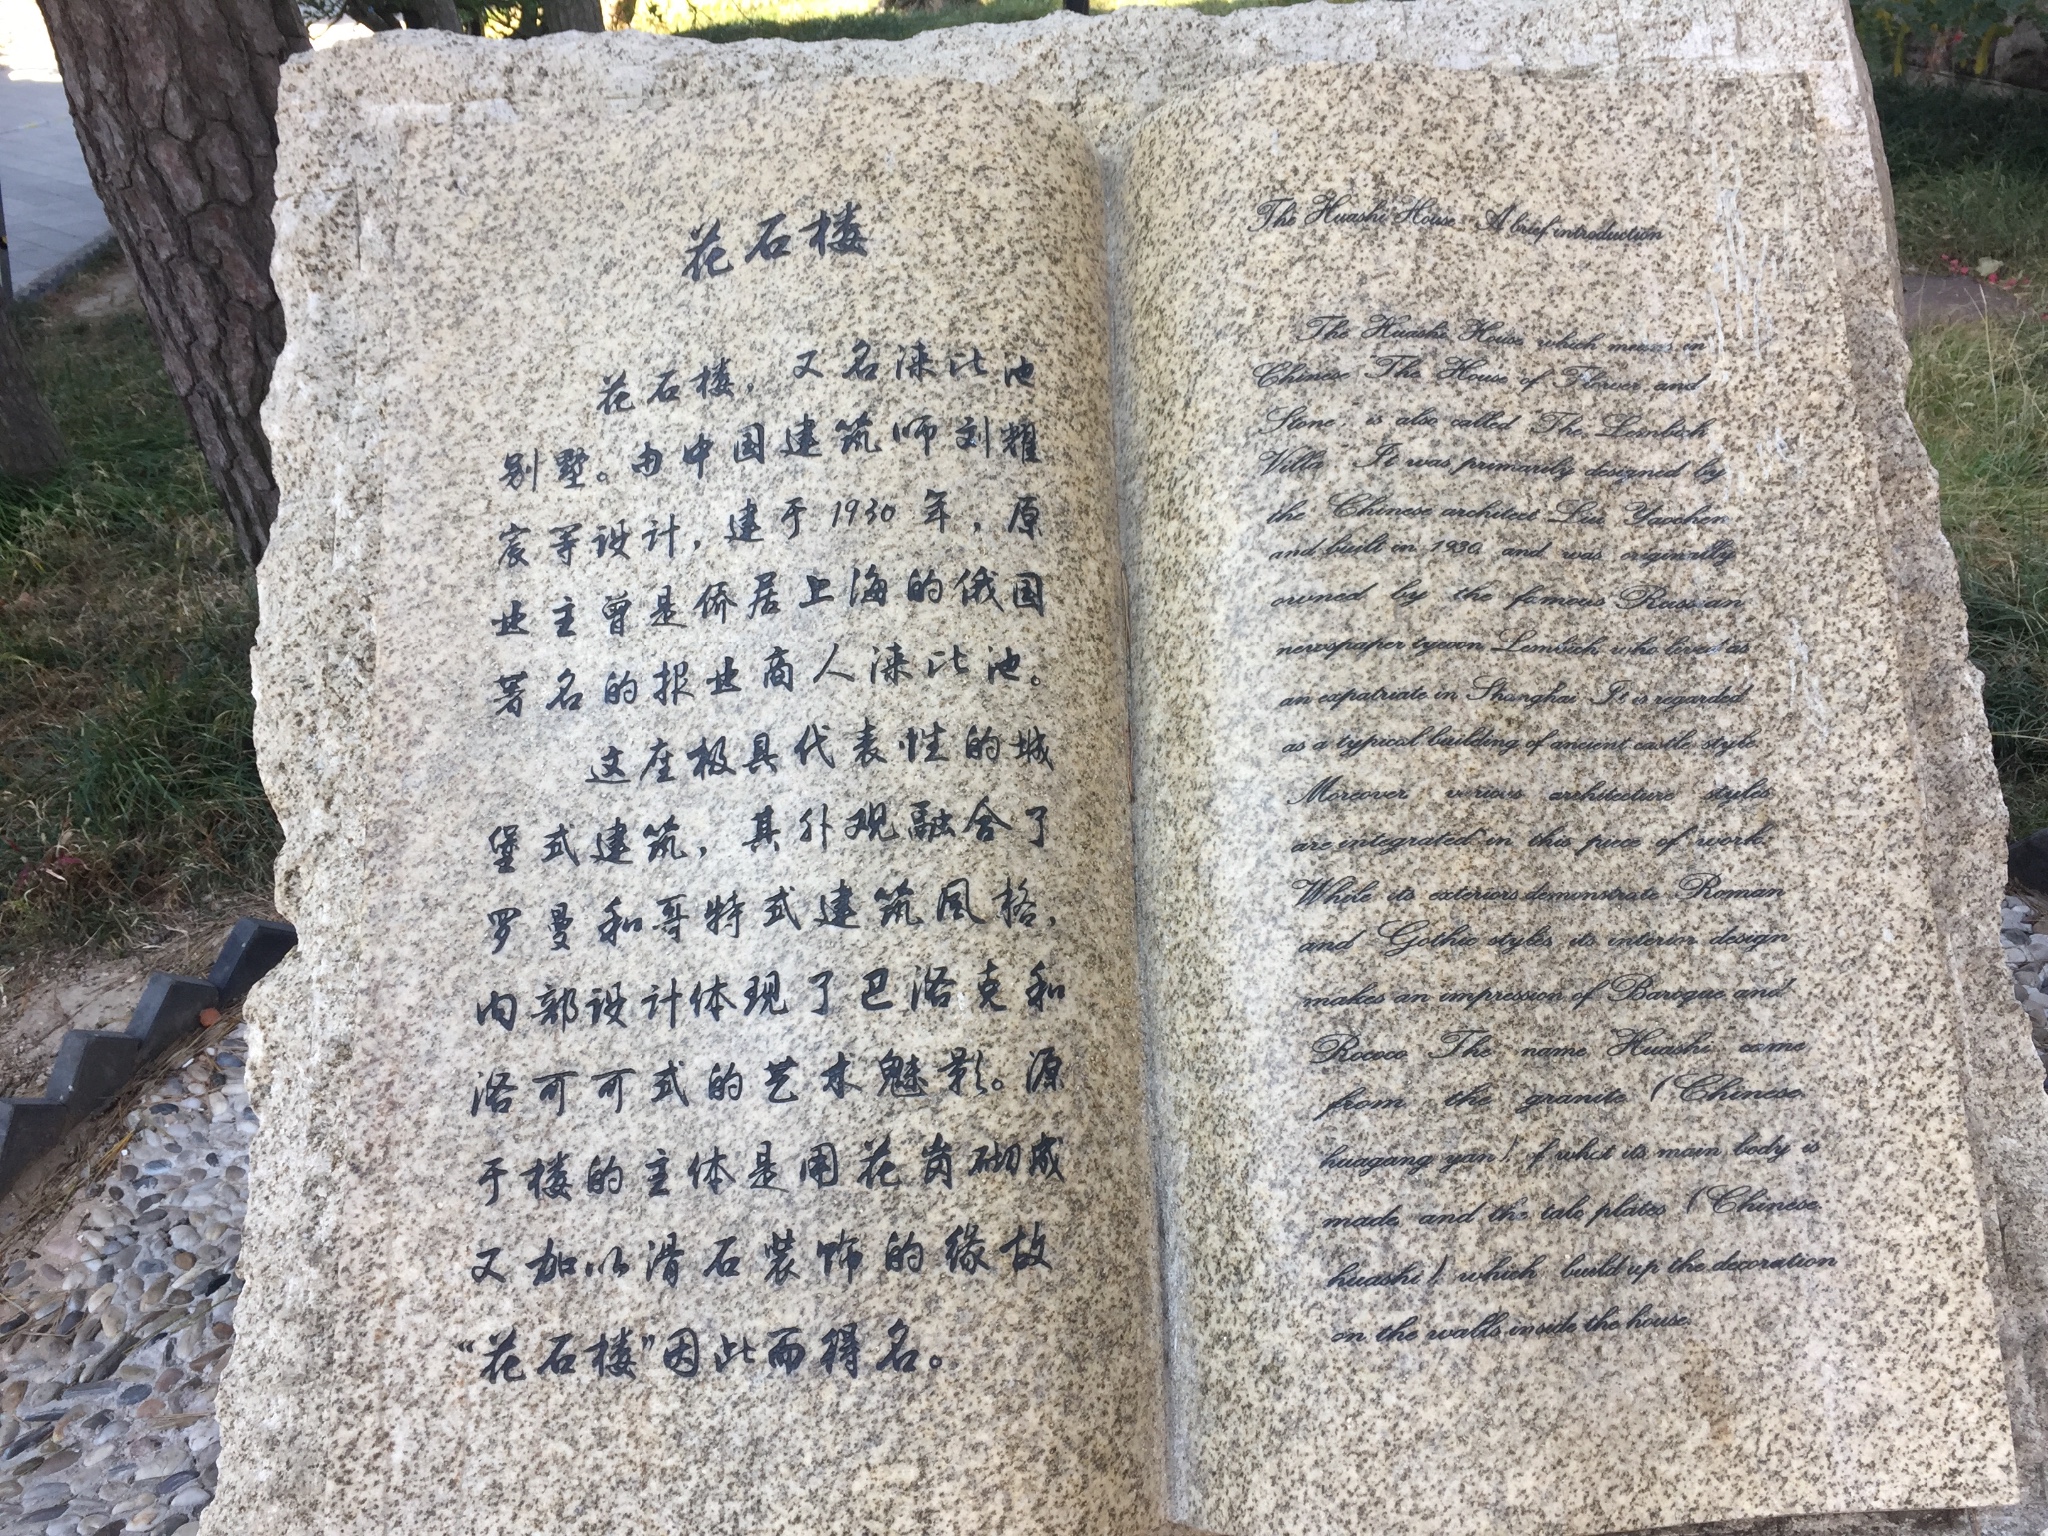 花石楼
花石楼，又名涞比池
别墅。由中国建筑师刘耀
宸等设计，建于1930年，原
业主曾是侨居上海的俄国
著名的报业商人涞比池。
这座极具代表性的城
堡式建筑，其外观融合了
罗曼和哥特式建筑风格，
内部设计体现了巴洛克和
洛可可式的艺术魅影。源
于楼的主体是用花岗砌成
又加以滑石装饰的缘故
“花石楼”因此而得名。
The Huashi House A brief introduction
The Huashi House, which means in
Chinese "The House of Flower and
Stone", is also called "The Lembich
Villa". It was primarily designed by
the Chinese architect Liu Yaochen
and built in 1930, and was originally
owned by the famous Russian
newspaper tycoon Lembich, who lived as
an expatriate in Shanghai. It is regarded
as a typical building of ancient castle style.
Moreover various architecture styles
are integrated in this piece of work.
While its exteriors demonstrate Roman
and Gothic styles, its interior design
makes an impression of Baroque and
Rococo. The name Huashi came
from the granite (Chinese
huagang yan), of what its main body is
made, and the talc plates (Chinese
huashi), which build up the decoration
on the walls inside the house.